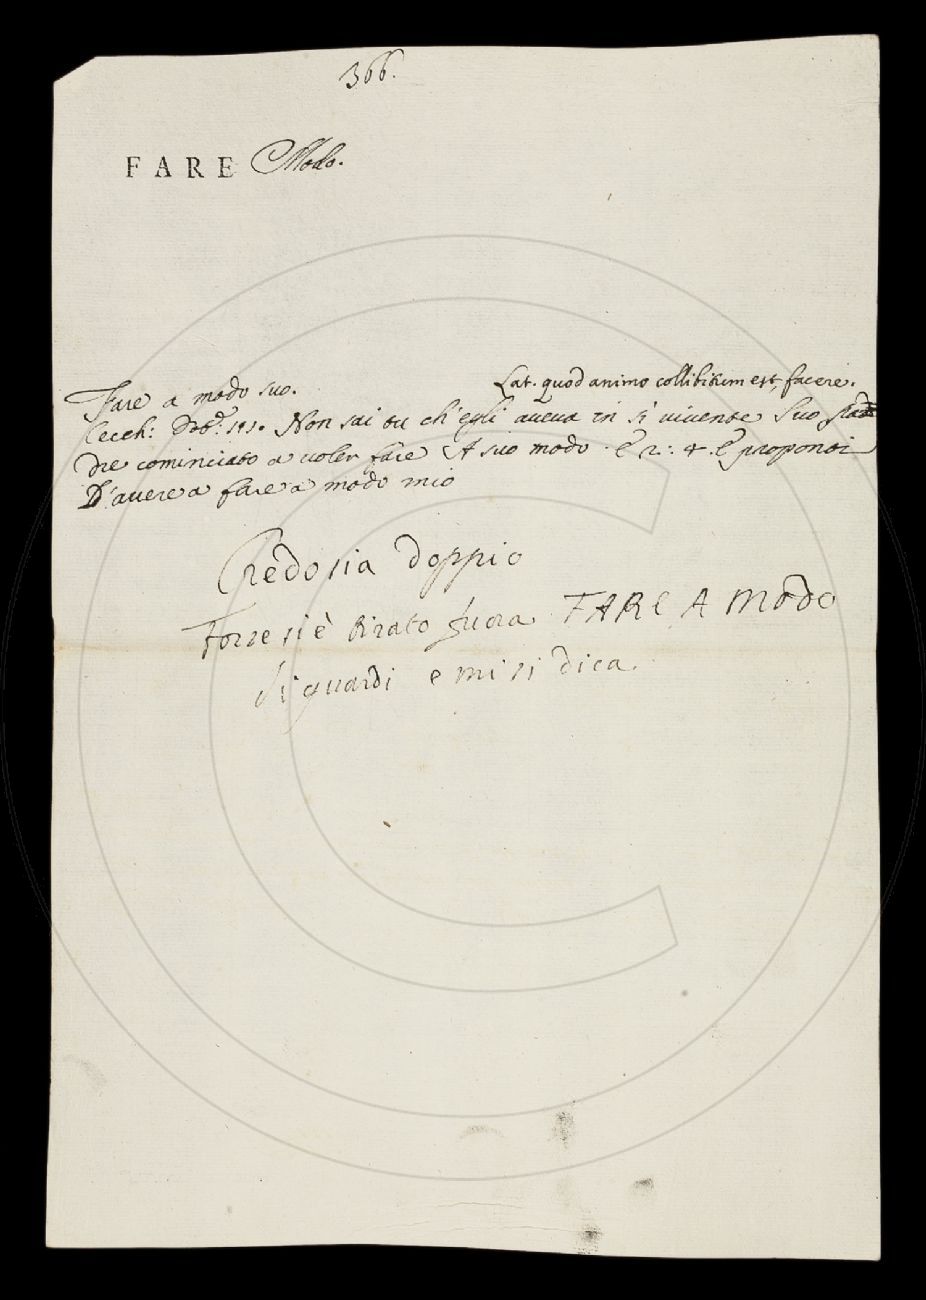 366.
FARE Modo.
Fare a modo suo. Lat. quod animo collibitum est, facere.
Cecch: Dot: 1.1. Non sai tu ch'egli aueua in sì uiuente suo Pad
dre cominciato a uoler fare A suo modo. E 2: 4. E proponti
D'auere a fare a modo mio
Credo sia doppio
Forse si è tirato fuora FARE A MODO
Si guardi e mi si dica.